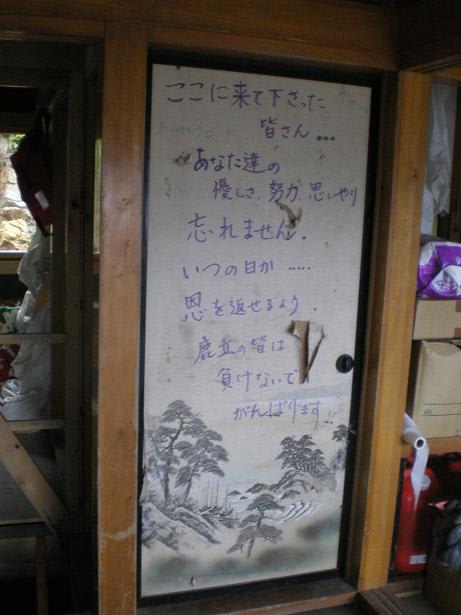 ここに来て下さった
皆さん...
あなた達の
優しさ、努力、思いやり
忘れません.
いつの日か .....
恩を返せるよう.
鹿立の皆は
負けないで
がんばります!!